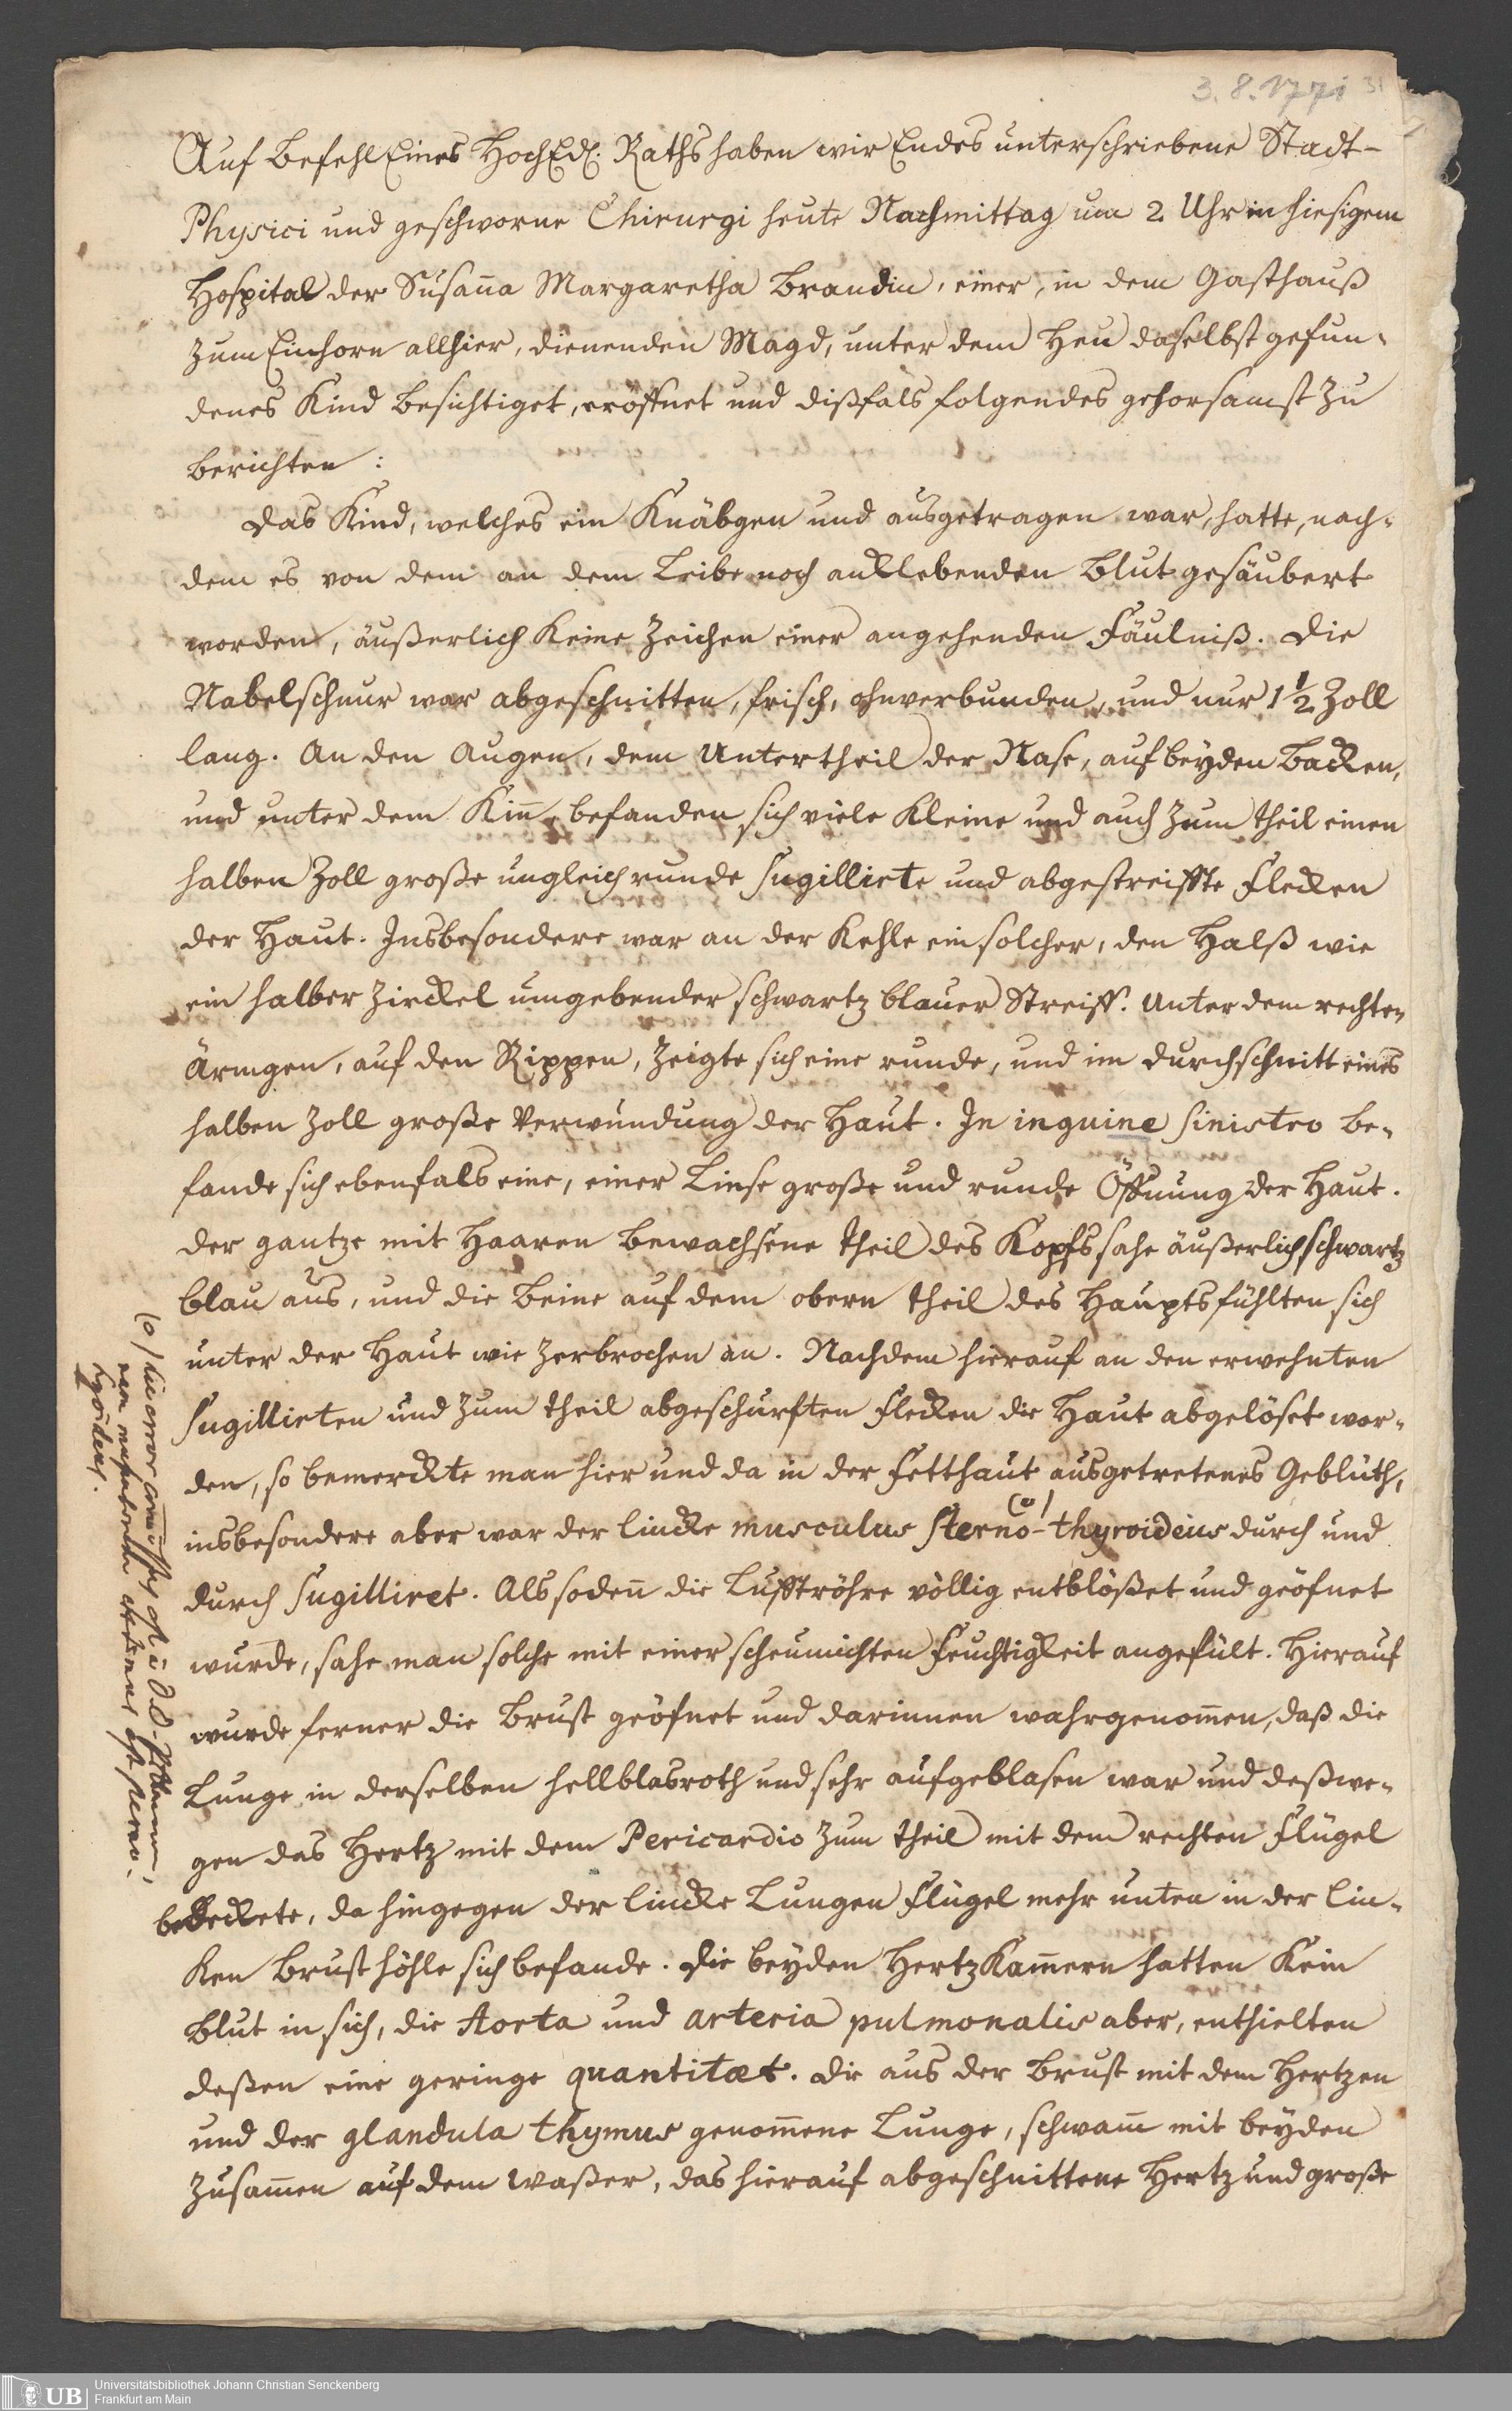 3. 8. 1771 31
Auf Befehl Eines HochEdl. Raths haben wir Endes unterschriebene Stadt-
Physici und geschworne Chirurgi heute Nachmittag um 2 Uhr in hiesigem
Hospital der Susan̄a Margaretha Brandin, einer, in dem Gasthauß
zum Einhorn allhier, dienenden Magd, unter dem Heu daselbst gefun-
denes Kind besichtiget, eröffnet und dißfals folgendes gehorsamst zu
berichten:
Das Kind, welches ein Knäbgen und ausgetragen war, hatte, nach-
dem es von dem an dem Leibe noch anklebenden Blut gesäubert
worden, äußerlich keine Zeichen einer angehenden Fäulniß. Die
Nabelschnur war abgeschnitten, frisch, ohnverbunden, und nur 1½ Zoll
lang. An den Augen, dem Untertheil der Nase, auf beyden Backen,
und unter dem Kin̄ befanden sich viele kleine und auch zum theil einen
halben Zoll große ungleich runde sugillirte und abgestreiffte Flecken
der Haut. Insbesondere war an der Kehle ein solcher, den Halß wie
ein halber Zirckel umgebender schwartz blauer Streiff. Unter dem rechten
Ärmgen, auf den Rippen, zeigte sich eine runde, und im Durchschnitt eines
halben Zoll große Verwundung der Haut. In inguine sinistro be-
fande sich ebenfals eine, einer Linse große und runde Öffnung der Haut.
Der gantze mit Haaren bewachsene theil des Kopfs sahe äußerlich schwartz
blau aus, und die Beine auf dem obern theil des Haupts fühlten sich
unter der Haut wie zerbrochen an. Nachdem hierauf an den erwehnten
sugillirten und zum theil abgeschurften Flecken die Haut abgelöset wor-
den, so bemerckte man hier und da in der Fetthaut ausgetretenes Geblüth,
insbesondere aber war der lincke musculus sterno-(o) thyroideus durch und
durch sugilliret. Als soden̄ die Lufftröhre völlig entblößet und geöfnet
wurde, sahe man solche mit einer scheumichten Feuchtigkeit angefült. Hierauf
wurde ferner die Brust geöfnet und darinnen wahrgenom̄en, daß die
Lunge in derselben hellblasroth und sehr aufgeblasen war und deßwe-
gen das Hertz mit dem Pericardio zum theil mit dem rechten Flügel
bedeckete, da hingegen der lincke Lungen Flügel mehr unten in der lin-
ken Brusthöhle sich befande. Die beyden Hertz Kam̄ern hatten kein
Blut in sich, die Aorta und arteria pulmonalis aber, enthielten
deßen eine geringe quantitæt. Die aus der Brust mit dem Hertzen
und der glandula thymus genom̄ene Lunge, schwam̄ mit beyden
zusam̄en auf dem Waßer, das hierauf abgeschnittene Hertz und große
(o) hic error
Universitätsbibliothek Johann Christian Senckenberg
Frankfurt am Main
UB